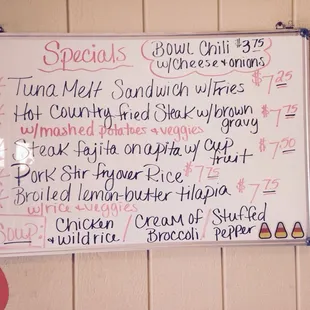 Specials
Bowl Chili $3.75
w/cheese & onions
Tuna Melt Sandwich w/Fries $7.25
Hot Country fried Steak w/brown gravy $7.75
w/mashed potatoes & veggies
Steak fajita on a pita w/ cup fruit $7.50
Pork Stir fry over Rice $7.75
Broiled lemon-butter tilapia $7.75
w/rice & veggies
Soup: Chicken & wild rice / Cream of Broccoli / Stuffed Pepper